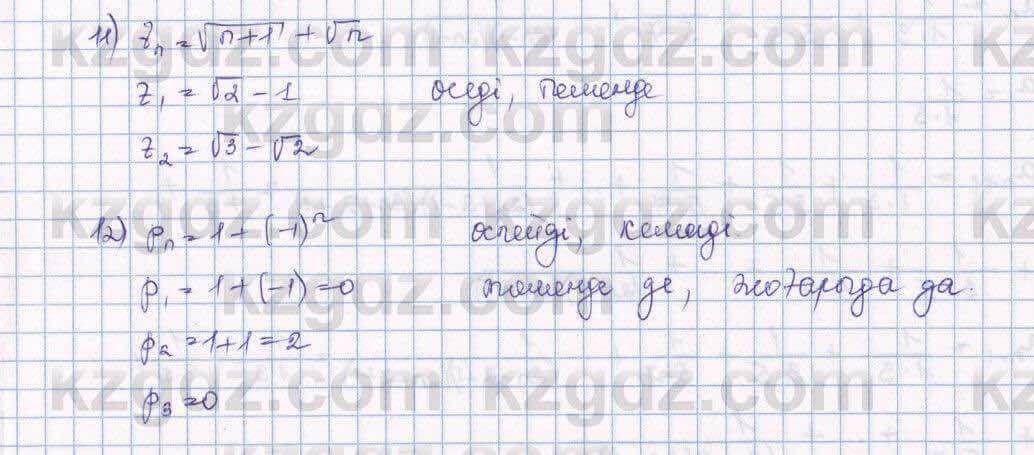 11) z_n = √(n+1) + √n
z_1 = √2 - 1 өседі, төменде
z_2 = √3 - √2
12) p_n = 1 + (-1)^n өспейді, кемиді
p_1 = 1 + (-1) = 0 төменде де, жоғарыда да.
p_2 = 1 + 1 = 2
p_3 = 0
kzgdz.com